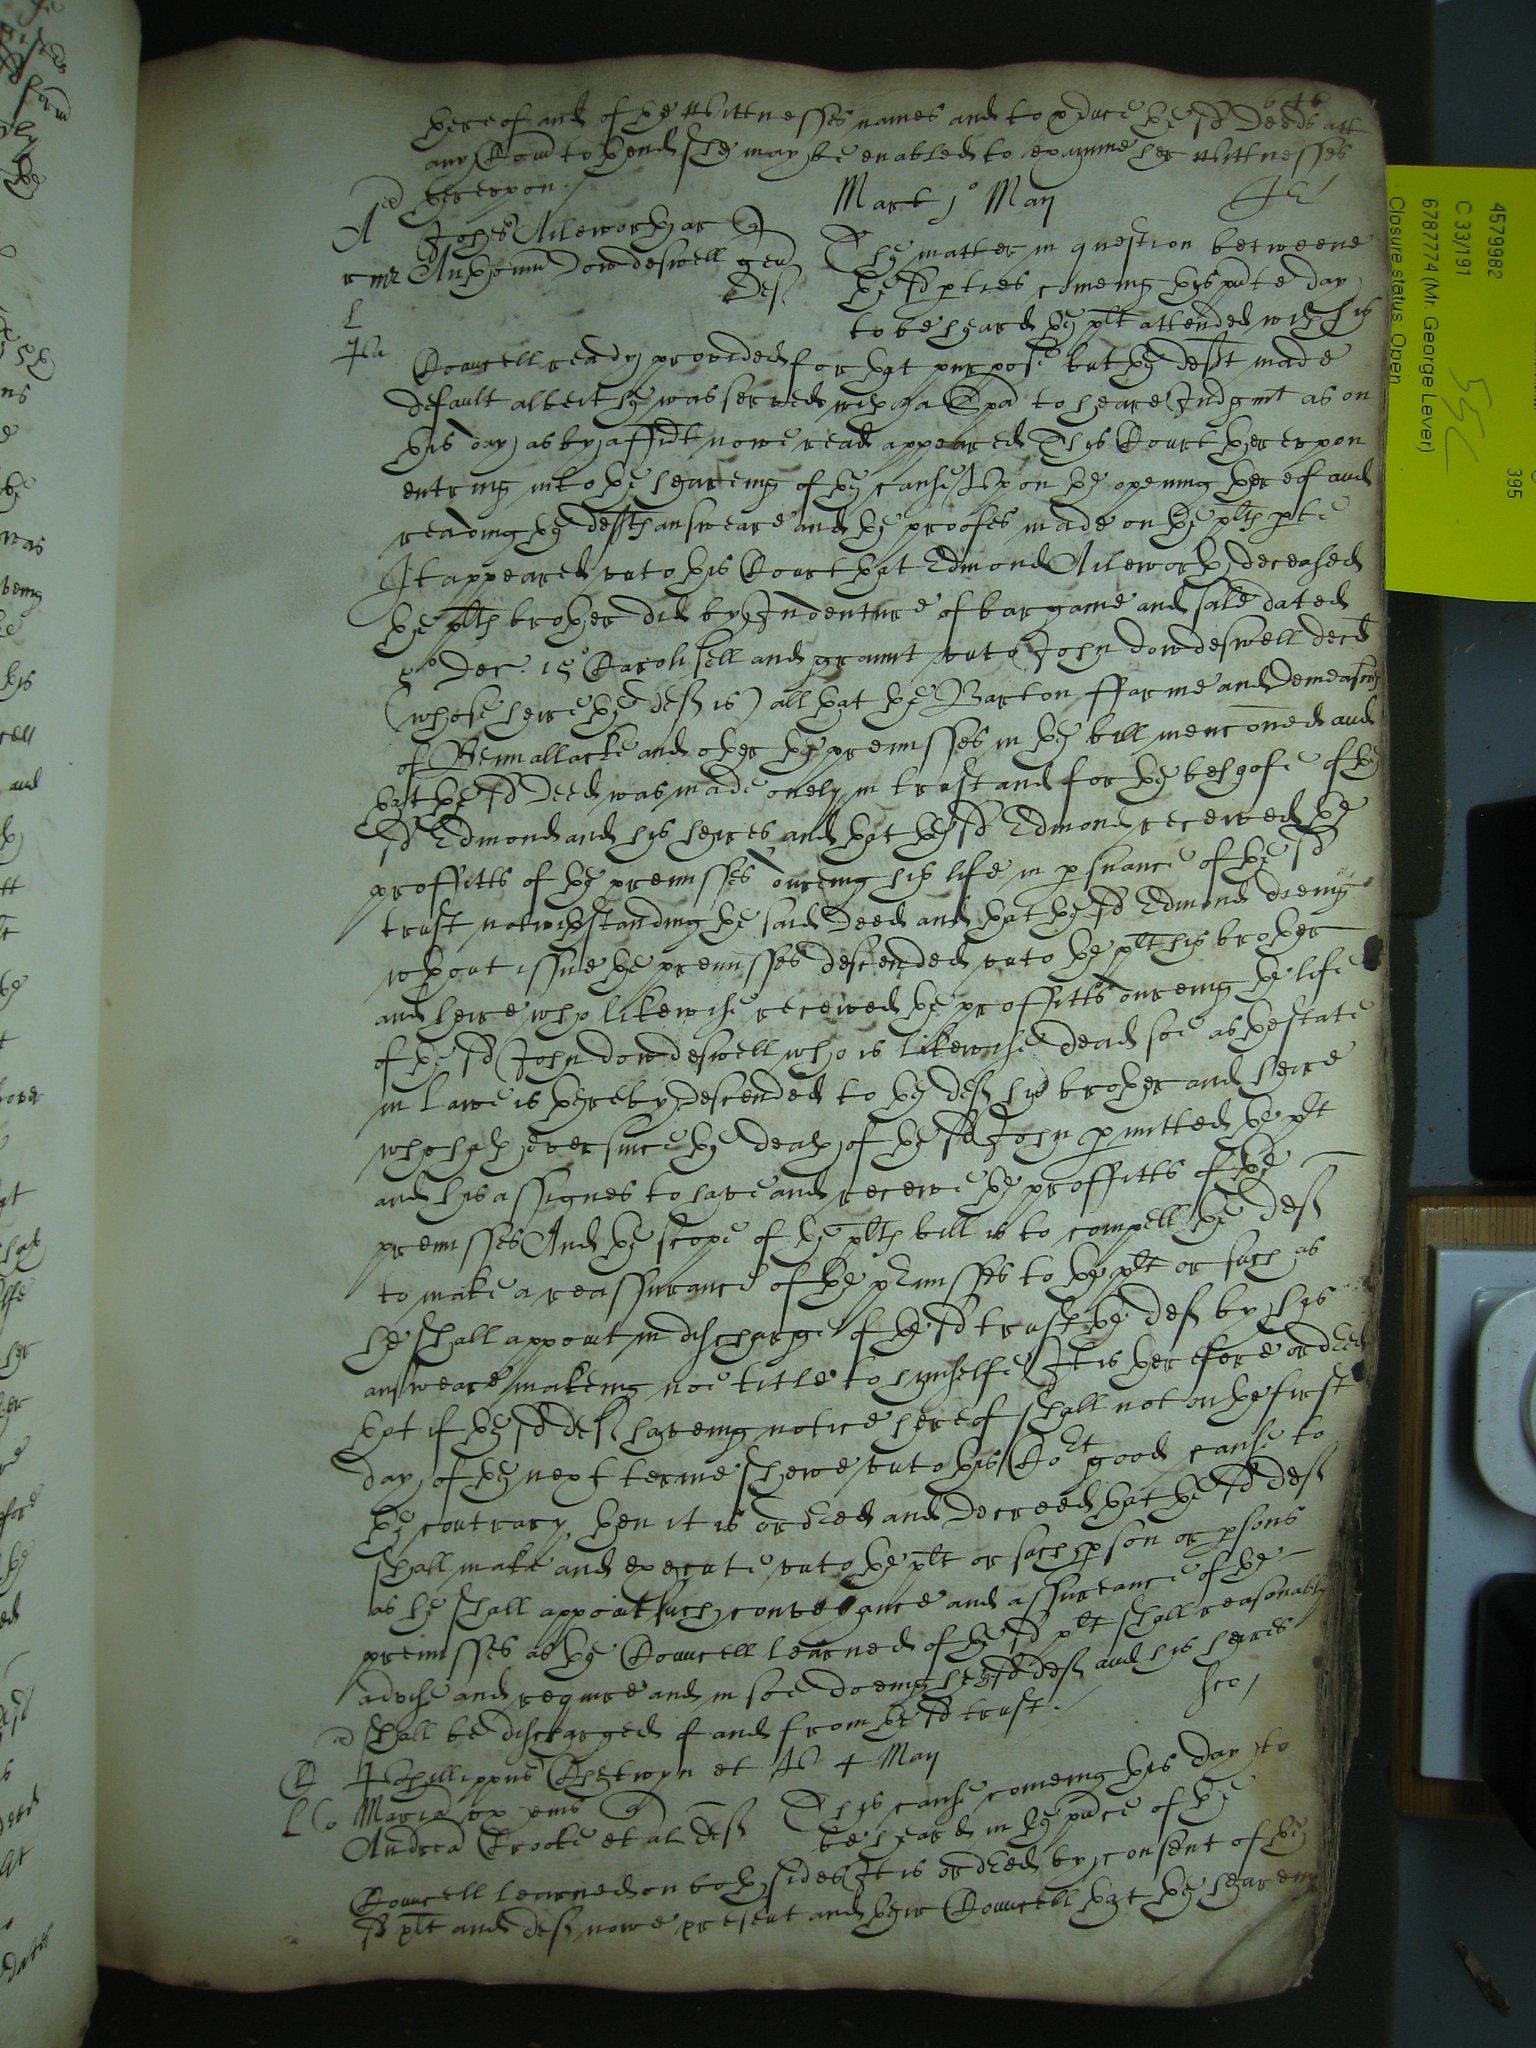 thereof and of the Wittnesses names and to pduce the sd Deeds att
any Com̄ to thend shee may be enabled to examine her Wittnesses
thereupon./
Mart 1° Maij
A
Johes Aileworth ar
The matter in question betweene
r mr Anthonium Dowdeswell gen
the sd pties comeing this pnte day
Def
L
to be heard the plt attended with his
Councell ready provided for that purpose but the deft made
default albeit he was served with a Spa to heare Judgmt as on
this day as by affidt nowe read appeared This Court thereupon
entring into the heareing of the cause Upon the opening thereof and
reading the defts answeare and the proofes made on the plts pte
It appeared unto this Court that Edmond Aileworth deceased
the plts brother did by Indenture of bargaine and sale dated
5° Dec. 15° Caroli sell and graunt unto John Dowdeswell deced
(whose heire the def is) all that the Barton ffarme and Demeasnes
of Pennallacke and other the premisses in the bill menconed and
that the sd Deed was made onely in trust and for the behoofe of the
sd Edmond and his heires, and that the sd Edmond received the
proffitts of the premisses dureing his life in psuance of the sd
trust notwithstanding the said Deed and that the sd Edmond dieing
without issue the premisses descended unto the plt his brother
and heire who likewise received the proffitts dureing the life
of the sd John Dowdeswell who is likewise dead soe as thestate
in Lawe is thereby descended to the def his brother and heire
who hath ever since the death of the sd John pmitted the plt
and his assignes to have and receive the proffitts of the
premisses And the scope of the plts bill is to compell the def
to make a reassurance of the pmisses to the plt or such as
he shall appoint in discharge of the sd trust the def by his
answeare makeing noe title to himselfe It is therefore ordred
that if the sd def haveing notice hereof shall not on the first
day of the next terme shewe unto this Cort good cause to
the contrary then it is ordred and decreed that the sd def
shall make and execute unto the plt or such pson or psons
as he shall appoint such conveyance and assureance of the
premisses as the Councell learned of the sd plt shall reasonably
advise and require and in soe doeing the sd def and his heires
shall be discharged of and from the sd trust./
R Phillippus Chetwyn et 4 Maij
L Co Maria ux eius
This cause comeing this day to
Andrea Crooke et al def
be heard in the pnce of the
Councell learned on both sides It is ordred by consent of the
sd plt and def nowe present and their Councell that the heareing
4579982
C 33/191
6787774 (Mr. George Lever)
Closure status: Open
395